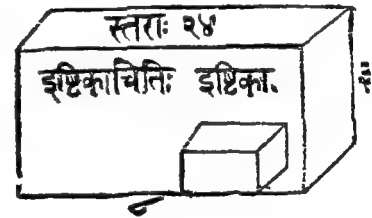 स्तराः २४
इष्टिकाचितिः इष्टिका.
८